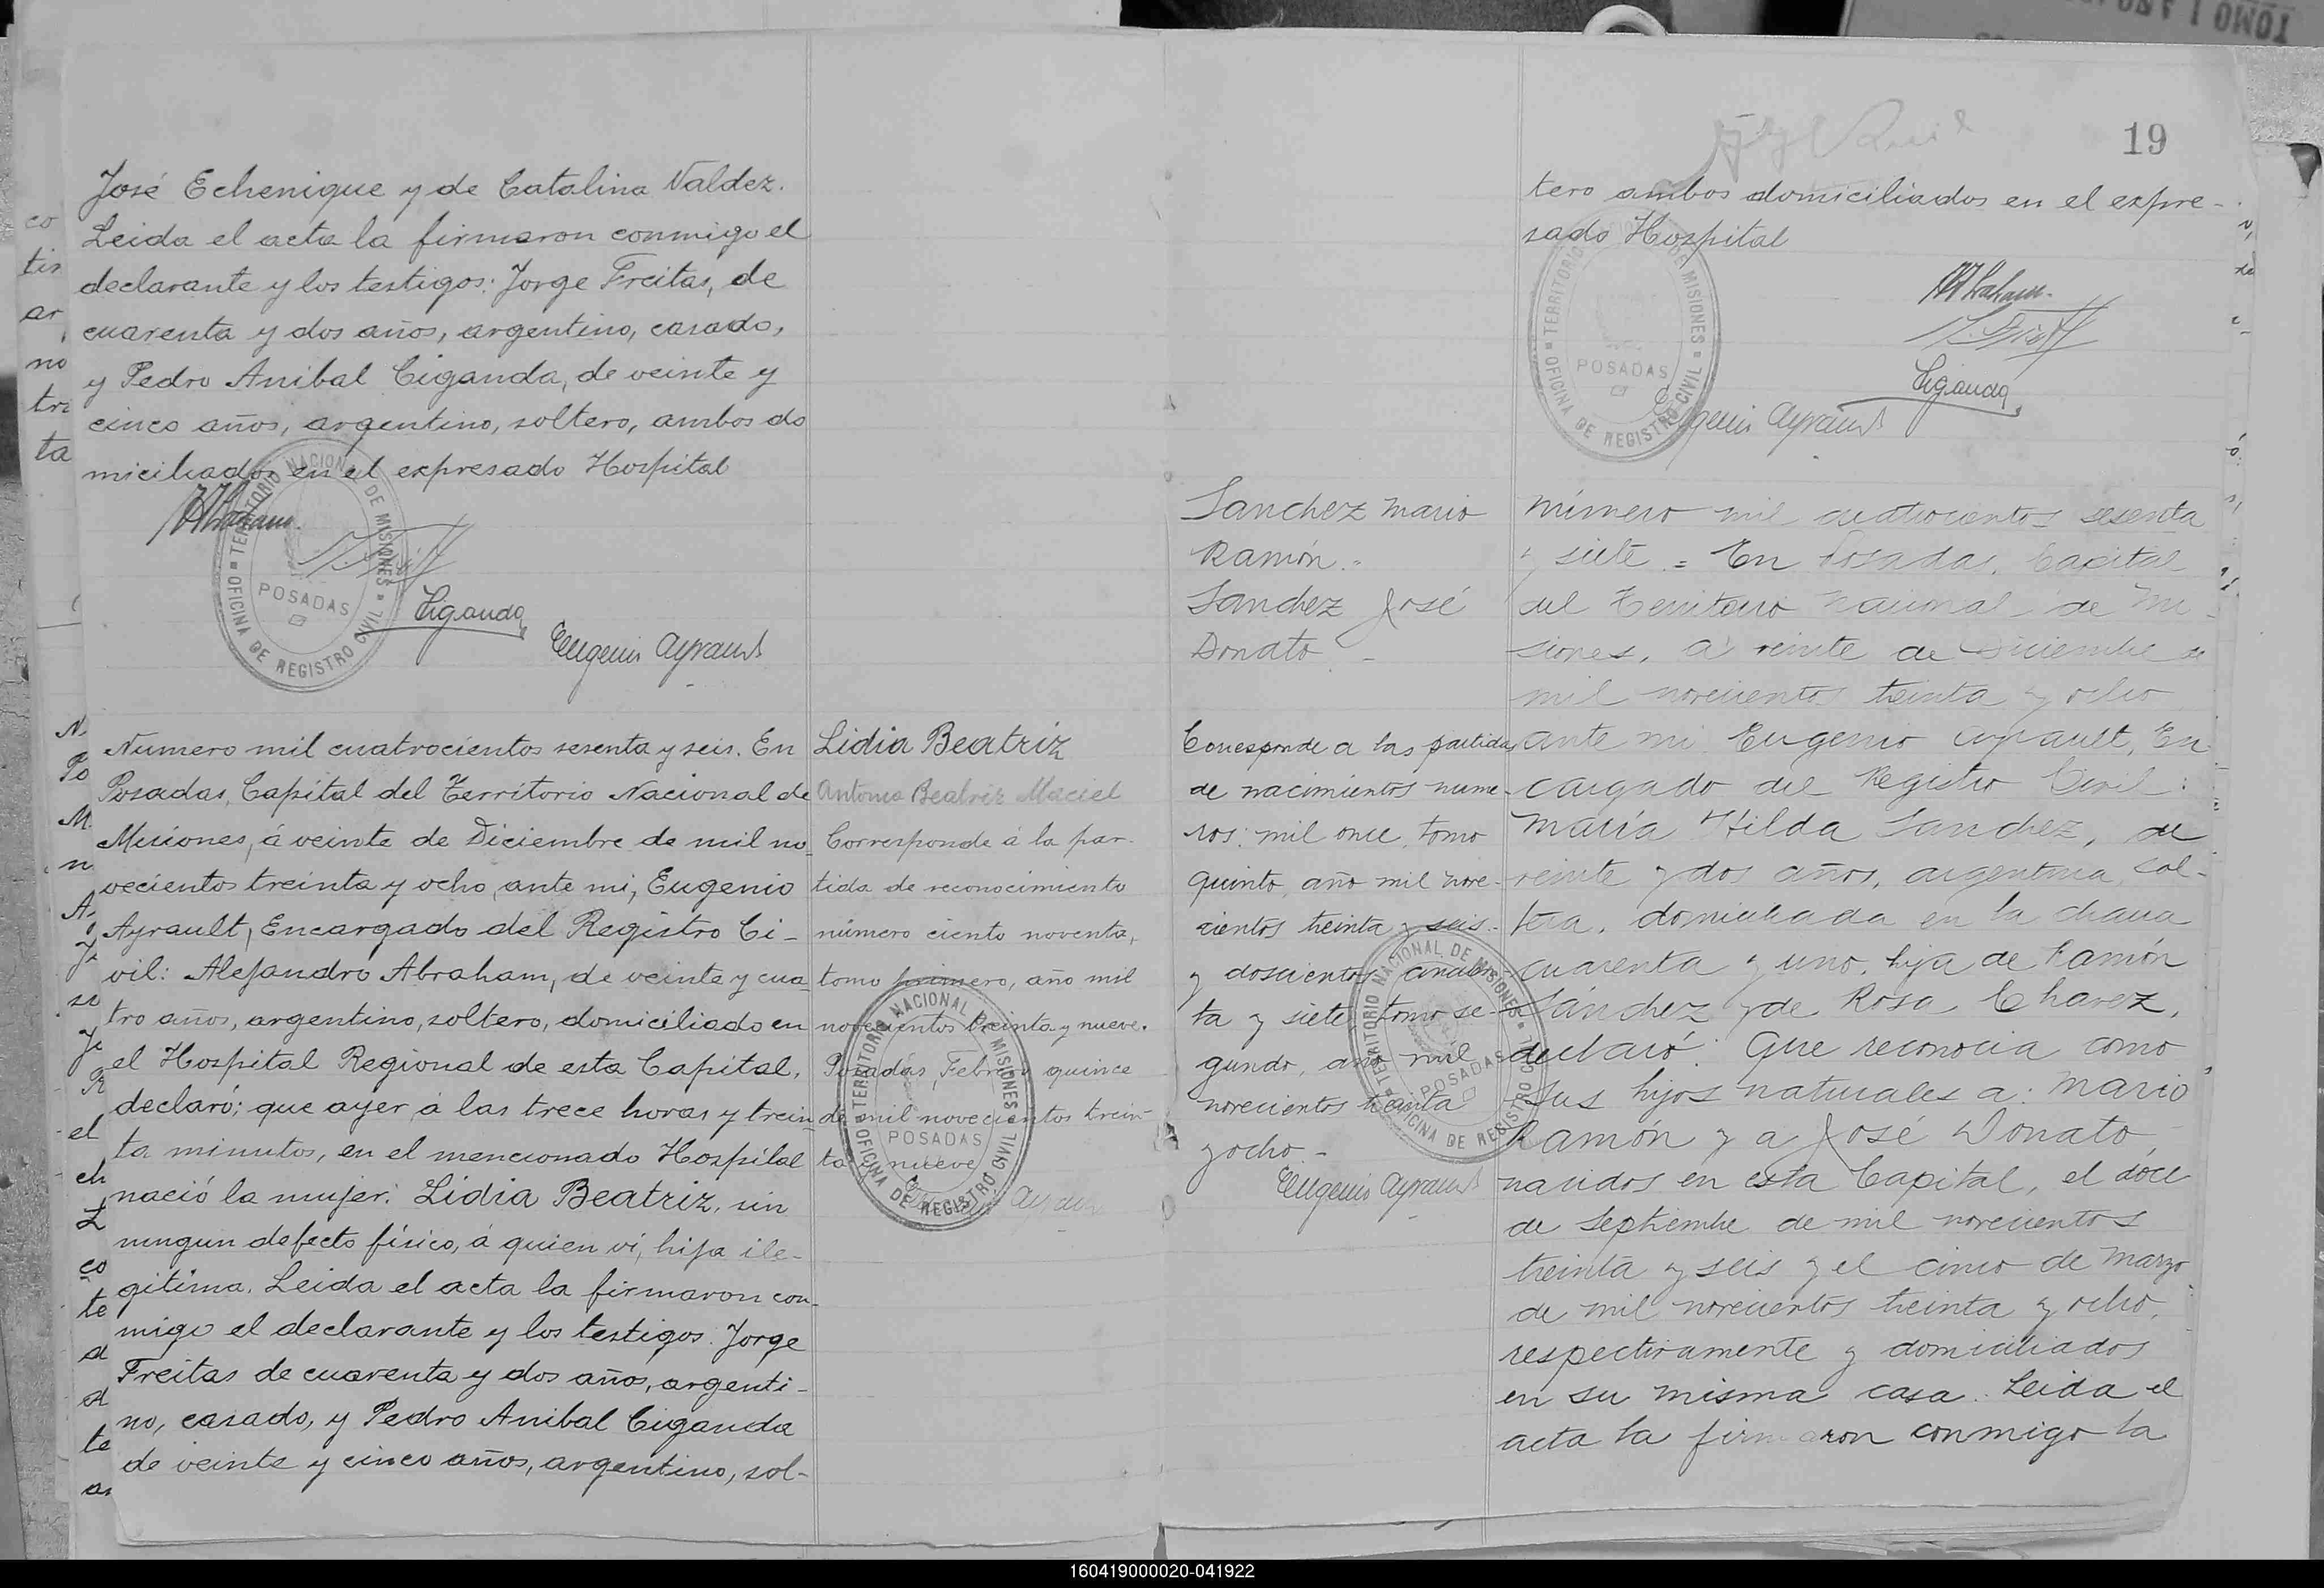 José Echenique y de Catalina Valdez.
Leida el acta la firmaron conmigo el
declarante y los testigos: Jorge Freitas, de
cuarenta y dos años, argentino, casado,
y Pedro Anibal Ciganda, de veinte y
cinco años, argentino, soltero, ambos do
miciliados en el expresado Hospital
TERRITORIO NACIONAL DE MISIONES
POSADAS
OFICINA DE REGISTRO CIVIL
Ciganda
Eugenio Ayrault
Numero mil cuatrocientos sesenta y seis. En
Posadas, Capital del Territorio Nacional de
Misiones, á veinte de Diciembre de mil no-
vecientos treinta y ocho, ante mi, Eugenio
Ayrault, Encargado del Registro Ci-
vil: Alejandro Abraham, de veinte y cua-
tro años, argentino, soltero, domiciliado en
el Hospital Regional de esta Capital,
declaró; que ayer á las trece horas y trein-
ta minutos, en el mencionado Hospital
nació la mujer: Lidia Beatriz, sin
ningun defecto físico, á quien ví, hija ile-
gitima. Leida el acta la firmaron con-
migo el declarante y los testigos: Jorge
Freitas de cuarenta y dos años, argenti-
no, casado, y Pedro Anibal Ciganda
de veinte y cinco años, argentino, sol-
Lidia Beatriz
Antonia Beatriz Maciel
Corresponde á la par-
tida de reconocimiento
número ciento noventa,
tomo primero, año mil
novecientos treinta y nueve.
Posadas, Febrero quince
de mil novecientos trein-
ta y nueve
TERRITORIO NACIONAL DE MISIONES
POSADAS
OFICINA DE REGISTRO CIVIL
19
tero ambos domiciliados en el expre-
sado Hospital
TERRITORIO NACIONAL DE MISIONES
POSADAS
OFICINA DE REGISTRO CIVIL
Ciganda
Eugenio Ayrault
Sanchez Mario
Ramón.-
Sanchez José
Donato -
Corresponde a las partidas
de nacimientos nume-
ros: mil once, tomo
quinto, año mil nove-
cientos treinta y seis-
y doscientos cuaren-
ta y siete, tomo se-
gundo, año mil
novecientos treinta
y ocho.-
Eugenio Ayrault
TERRITORIO NACIONAL DE MISIONES
POSADAS
OFICINA DE REGISTRO CIVIL
Número mil cuatrocientos sesenta
y siete = En Posadas, Capital
del Territorio Nacional de Mi-
siones, a veinte de Diciembre de
mil novecientos treinta y ocho
ante mi Eugenio Ayrault, En-
cargado del Registro Civil:
María Hilda Sanchez, de
veinte y dos años, argentina, sol-
tera, domiciliada en la chacra
cuarenta y uno, hija de Ramón
Sánchez y de Rosa Chavez,
declaró: Que reconocia como
sus hijos naturales a: Mario
Ramón y a José Donato,
nacidos en esta Capital, el doce
de Septiembre de mil novecientos
treinta y seis y el cinco de Marzo
de mil novecientos treinta y ocho,
respectivamente y domiciliados
en su misma casa. Leida el
acta la firmaron conmigo la
160419000020-041922